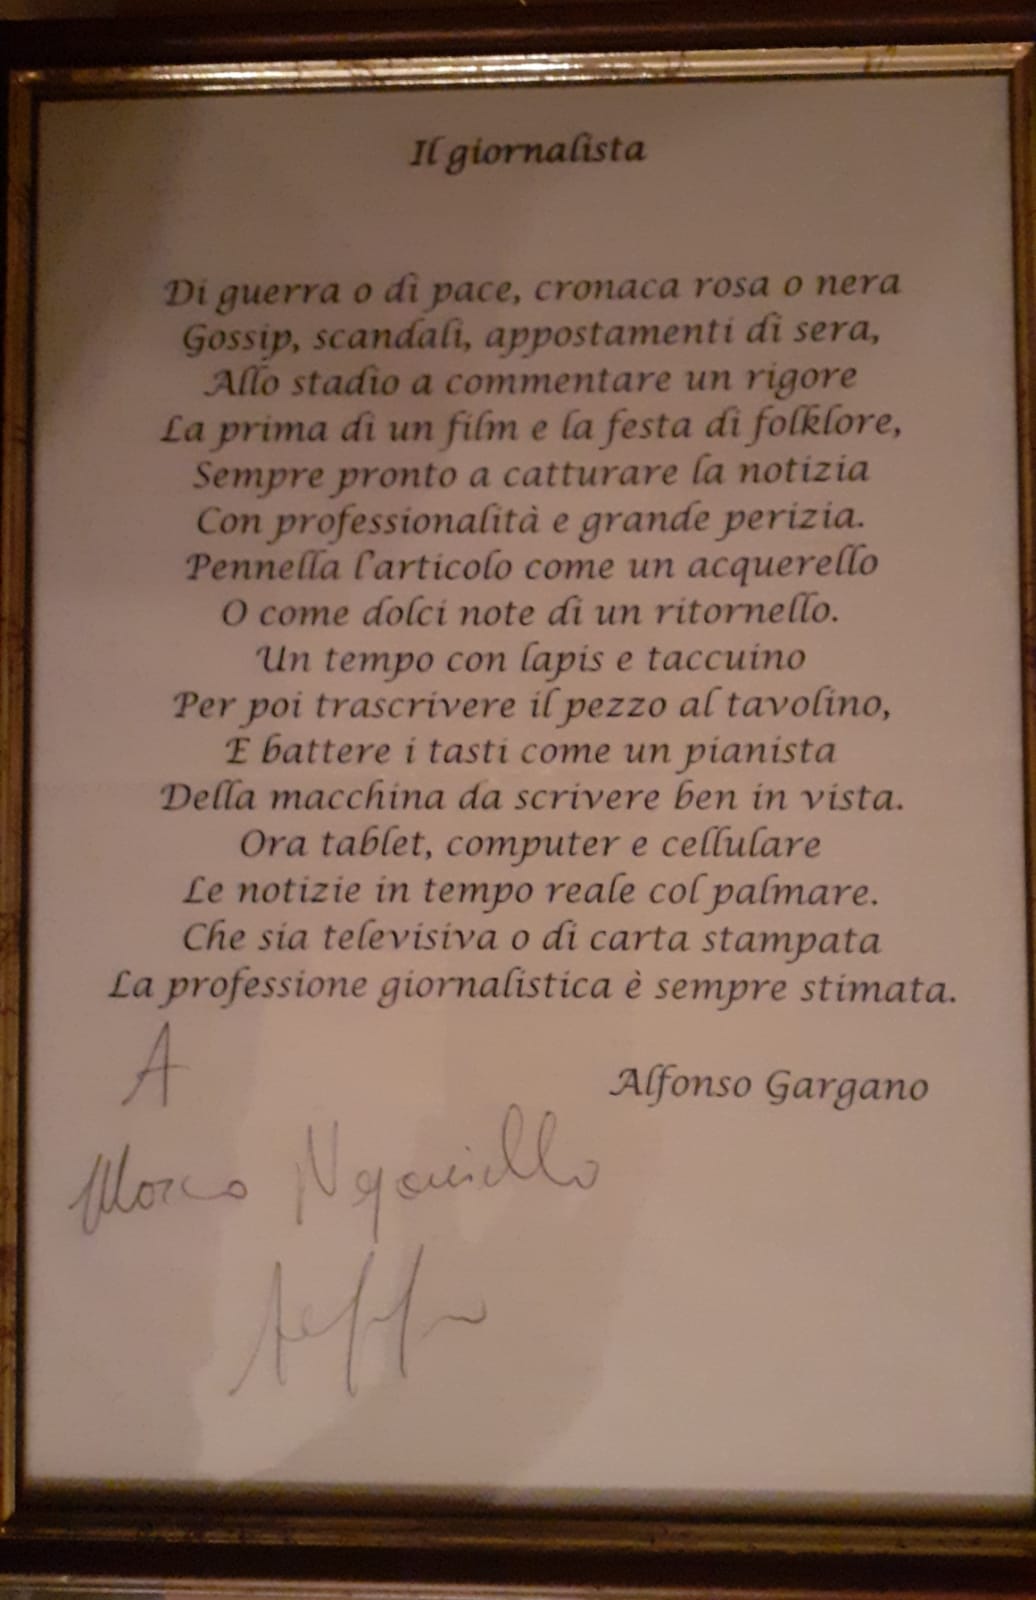 Il giornalista
Di guerra o di pace, cronaca rosa o nera
Gossip, scandali, appostamenti di sera,
Allo stadio a commentare un rigore
La prima di un film e la festa di folklore,
Sempre pronto a catturare la notizia
Con professionalità e grande perizia.
Pennella l'articolo come un acquerello
O come dolci note di un ritornello.
Un tempo con lapis e taccuino
Per poi trascrivere il pezzo al tavolino,
E battere i tasti come un pianista
Della macchina da scrivere ben in vista.
Ora tablet, computer e cellulare
Le notizie in tempo reale col palmare.
Che sia televisiva o di carta stampata
La professione giornalistica è sempre stimata.
Alfonso Gargano
A
Marco